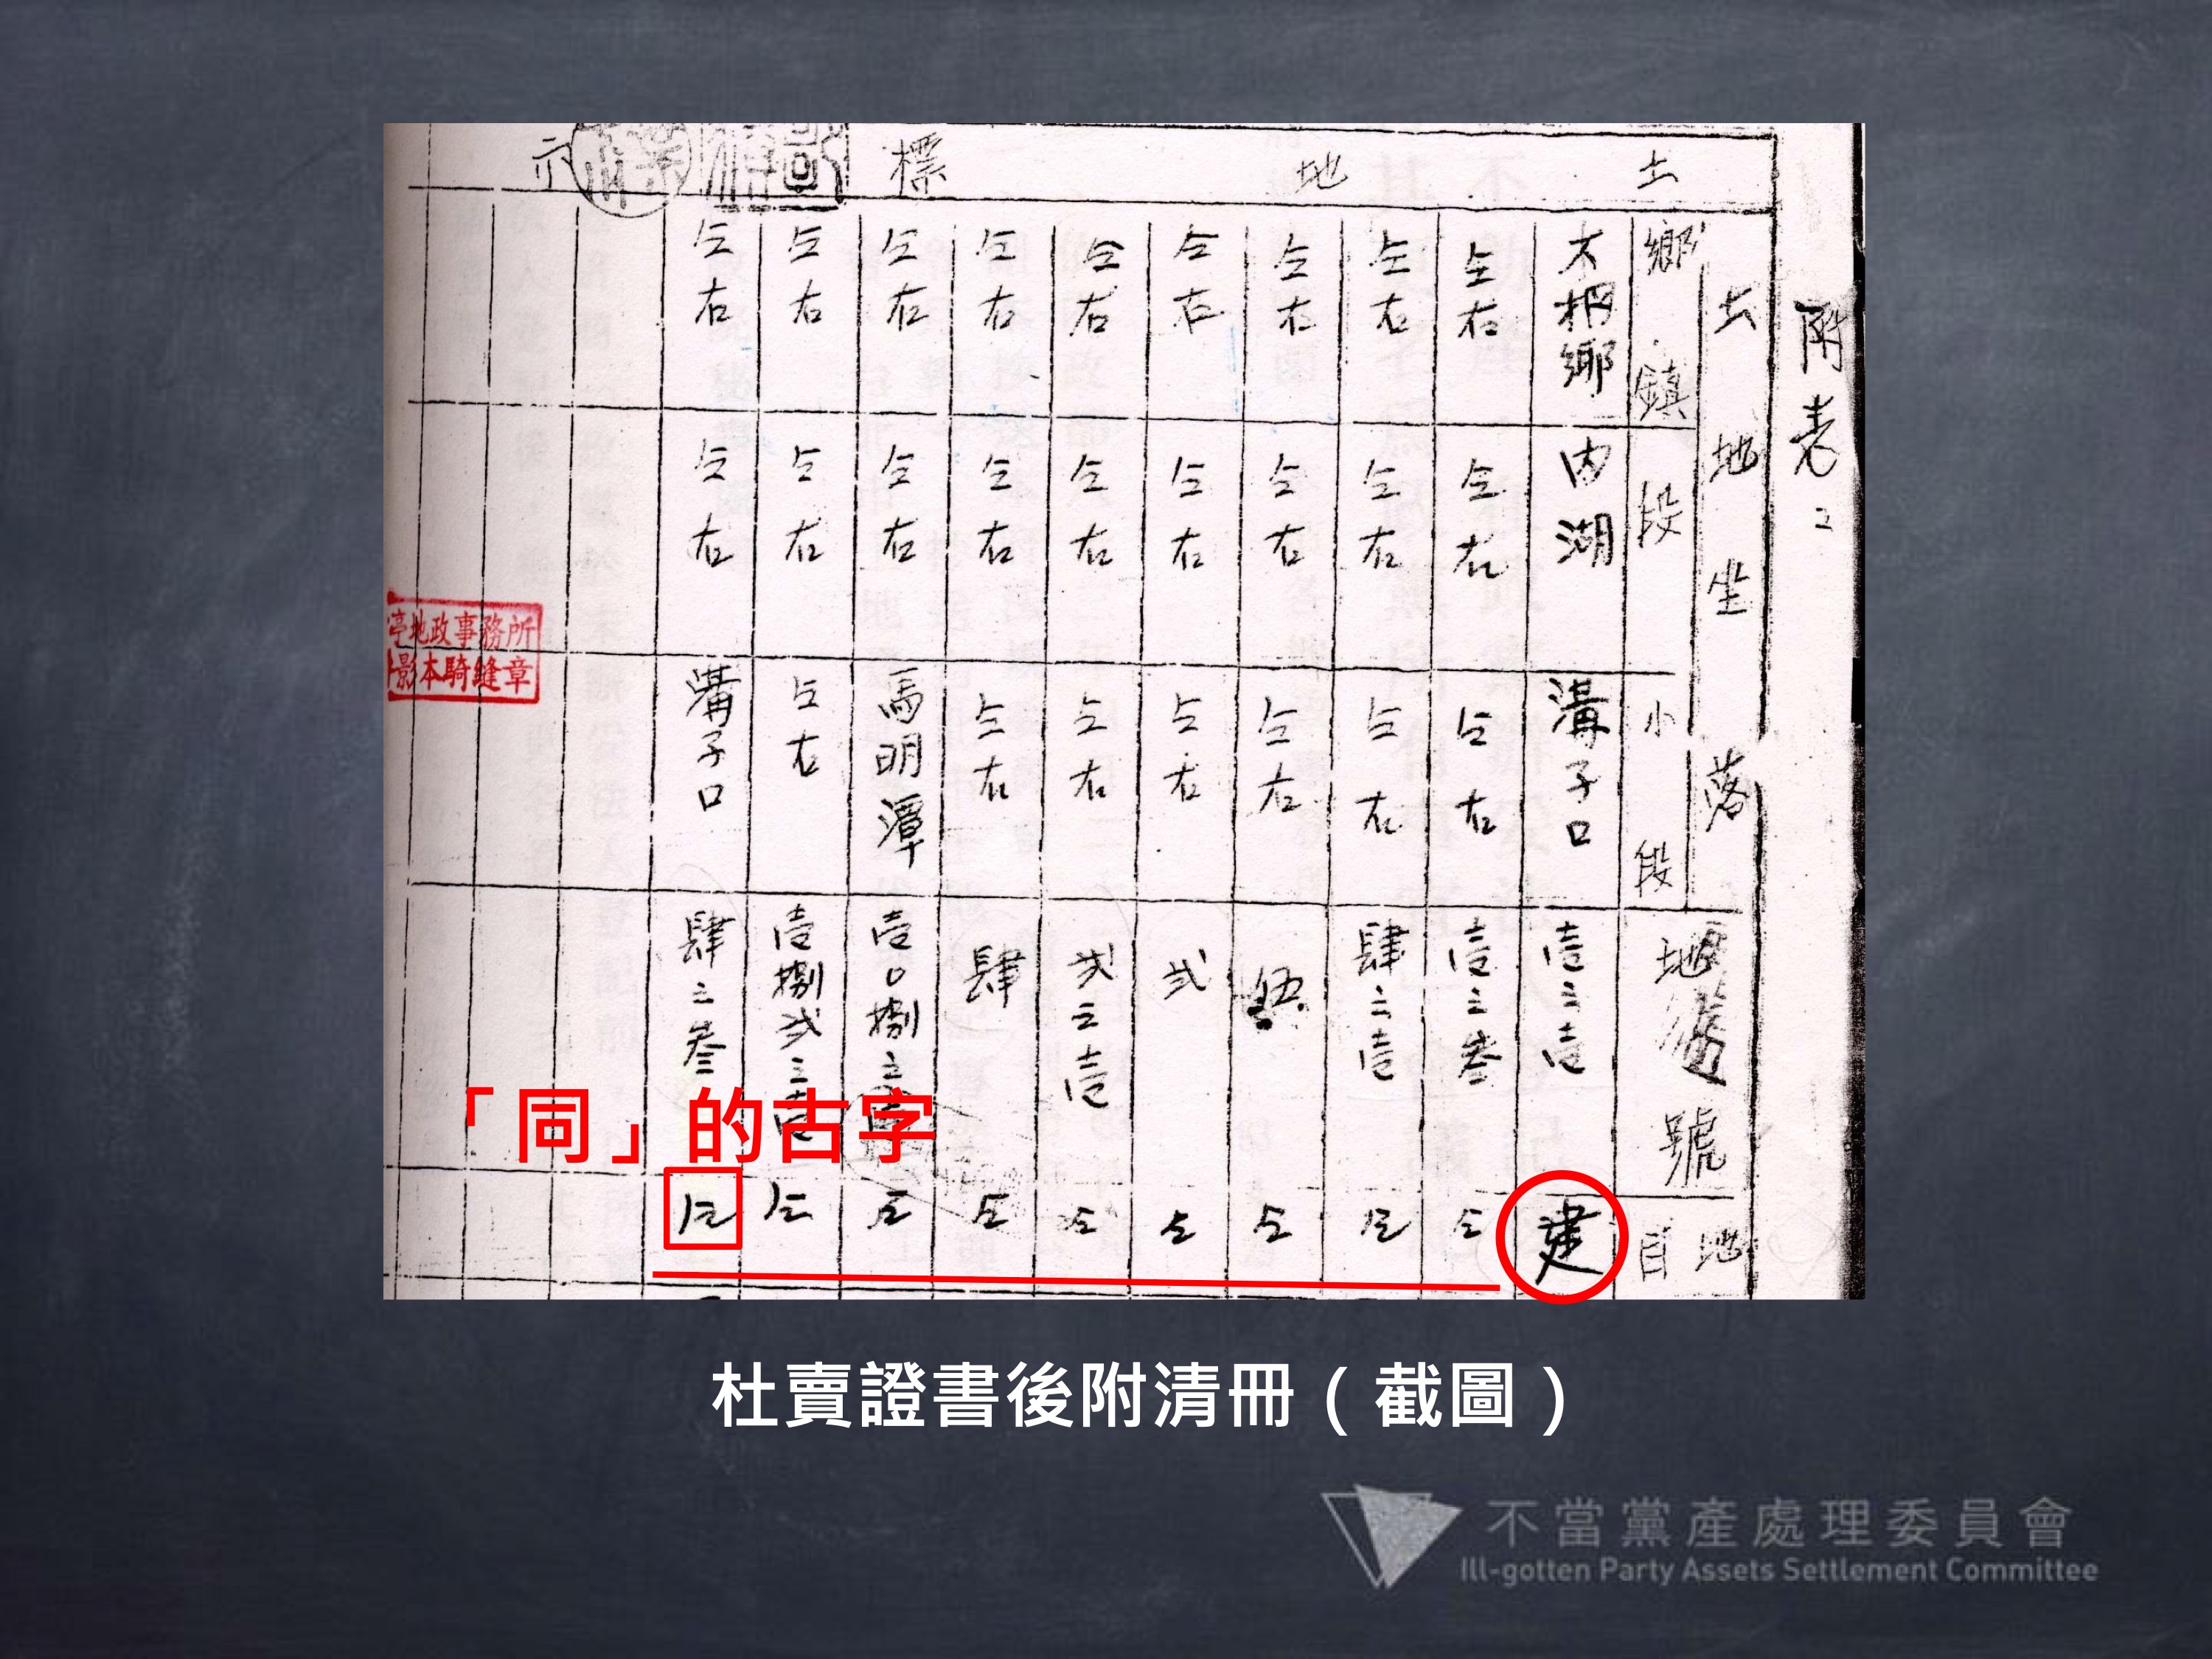 附表二
土地標示
土地坐落
鄉鎮
段
小段
地號
地目
木柵鄉
内湖
溝子口
壹之壹
建
仝右
仝右
仝右
壹之叁
仝
仝右
仝右
仝右
肆之壹
仝
仝右
仝右
仝右
伍
仝
仝右
仝右
仝右
弍
仝
仝右
仝右
仝右
弍之壹
仝
仝右
仝右
仝右
肆
仝
仝右
仝右
馬明潭
壹0捌之
仝
仝右
仝右
仝右
壹捌弍之壹
仝
仝右
仝右
溝子口
肆之叁
仝
亭地政事務所
影本騎縫章
「同」的古字
杜賣證書後附清冊（截圖）
不當黨產處理委員會
Ill-gotten Party Assets Settlement Committee